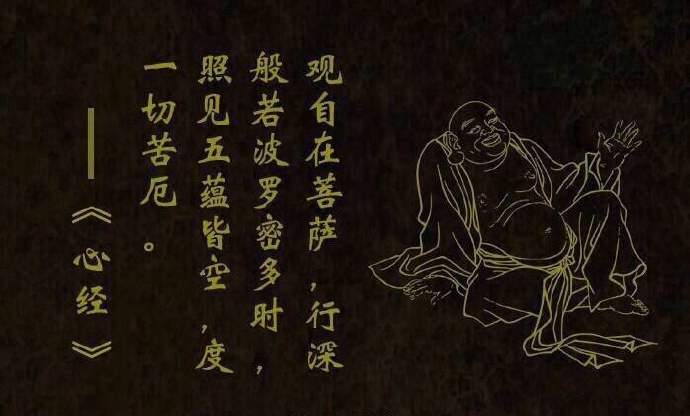 观自在菩萨,行深
般若波罗密多时,
照见五蕴皆空,度
一切苦厄。
——《心经》